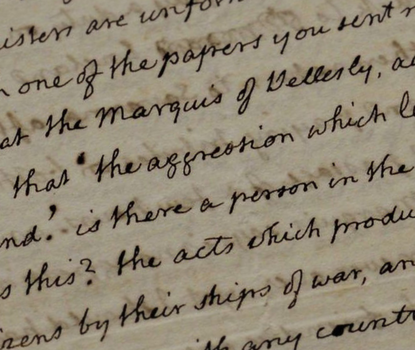 isters are uniform
n one of the papers you sent
at the Marquis of Wellesly, a
that 'the aggression which
nd.' is there a person in the
s this? the acts which produ
izens by their ships of war, an
with any countr